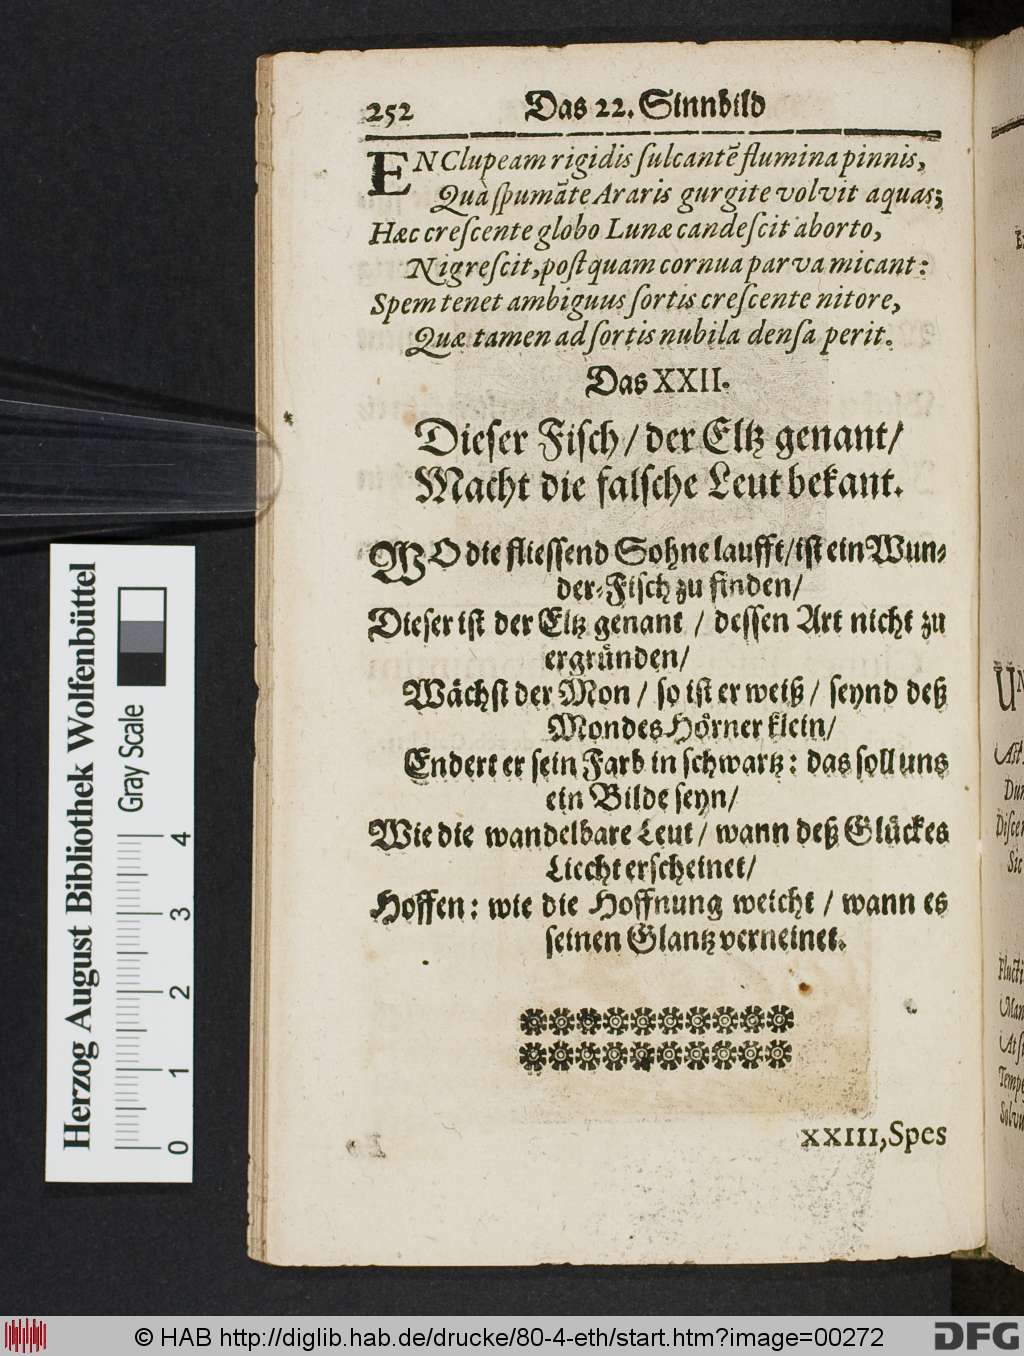 252 Das 22. Sinnbild
EN Clupeam rigidis ſulcantẽ flumina pinnis,
Quà ſpumãte Araris gurgite volvit aquas;
Hæc creſcente globo Lunæ candeſcit aborto,
Nigreſcit, poſtquam cornua parva micant:
Spem tenet ambiguus ſortis creſcente nitore,
Quæ tamen ad ſortis nubila denſa perit.
Das XXII.
Dieſer Fiſch / der Eltz genant/
Macht die falſche Leut bekant.
WO die flieſſend Sohne laufft/iſt ein Wun-
der-Fiſch zu finden/
Dieſer iſt der Eltz genant / deſſen Art nicht zu
ergruͤnden/
Waͤchſt der Mon / ſo iſt er weiß / ſeynd deß
Mondes Hoͤrner klein/
Endert er ſein Farb in ſchwartz: das ſoll uns
ein Bilde ſeyn/
Wie die wandelbare Leut / wann deß Gluͤckes
Liecht erſcheinet/
Hoffen: wie die Hoffnung weicht / wann es
ſeinen Glantz verneinet.
XXIII, Spes
Herzog August Bibliothek Wolfenbüttel
Gray Scale
0 1 2 3 4
© HAB http://diglib.hab.de/drucke/80-4-eth/start.htm?image=00272
DFG